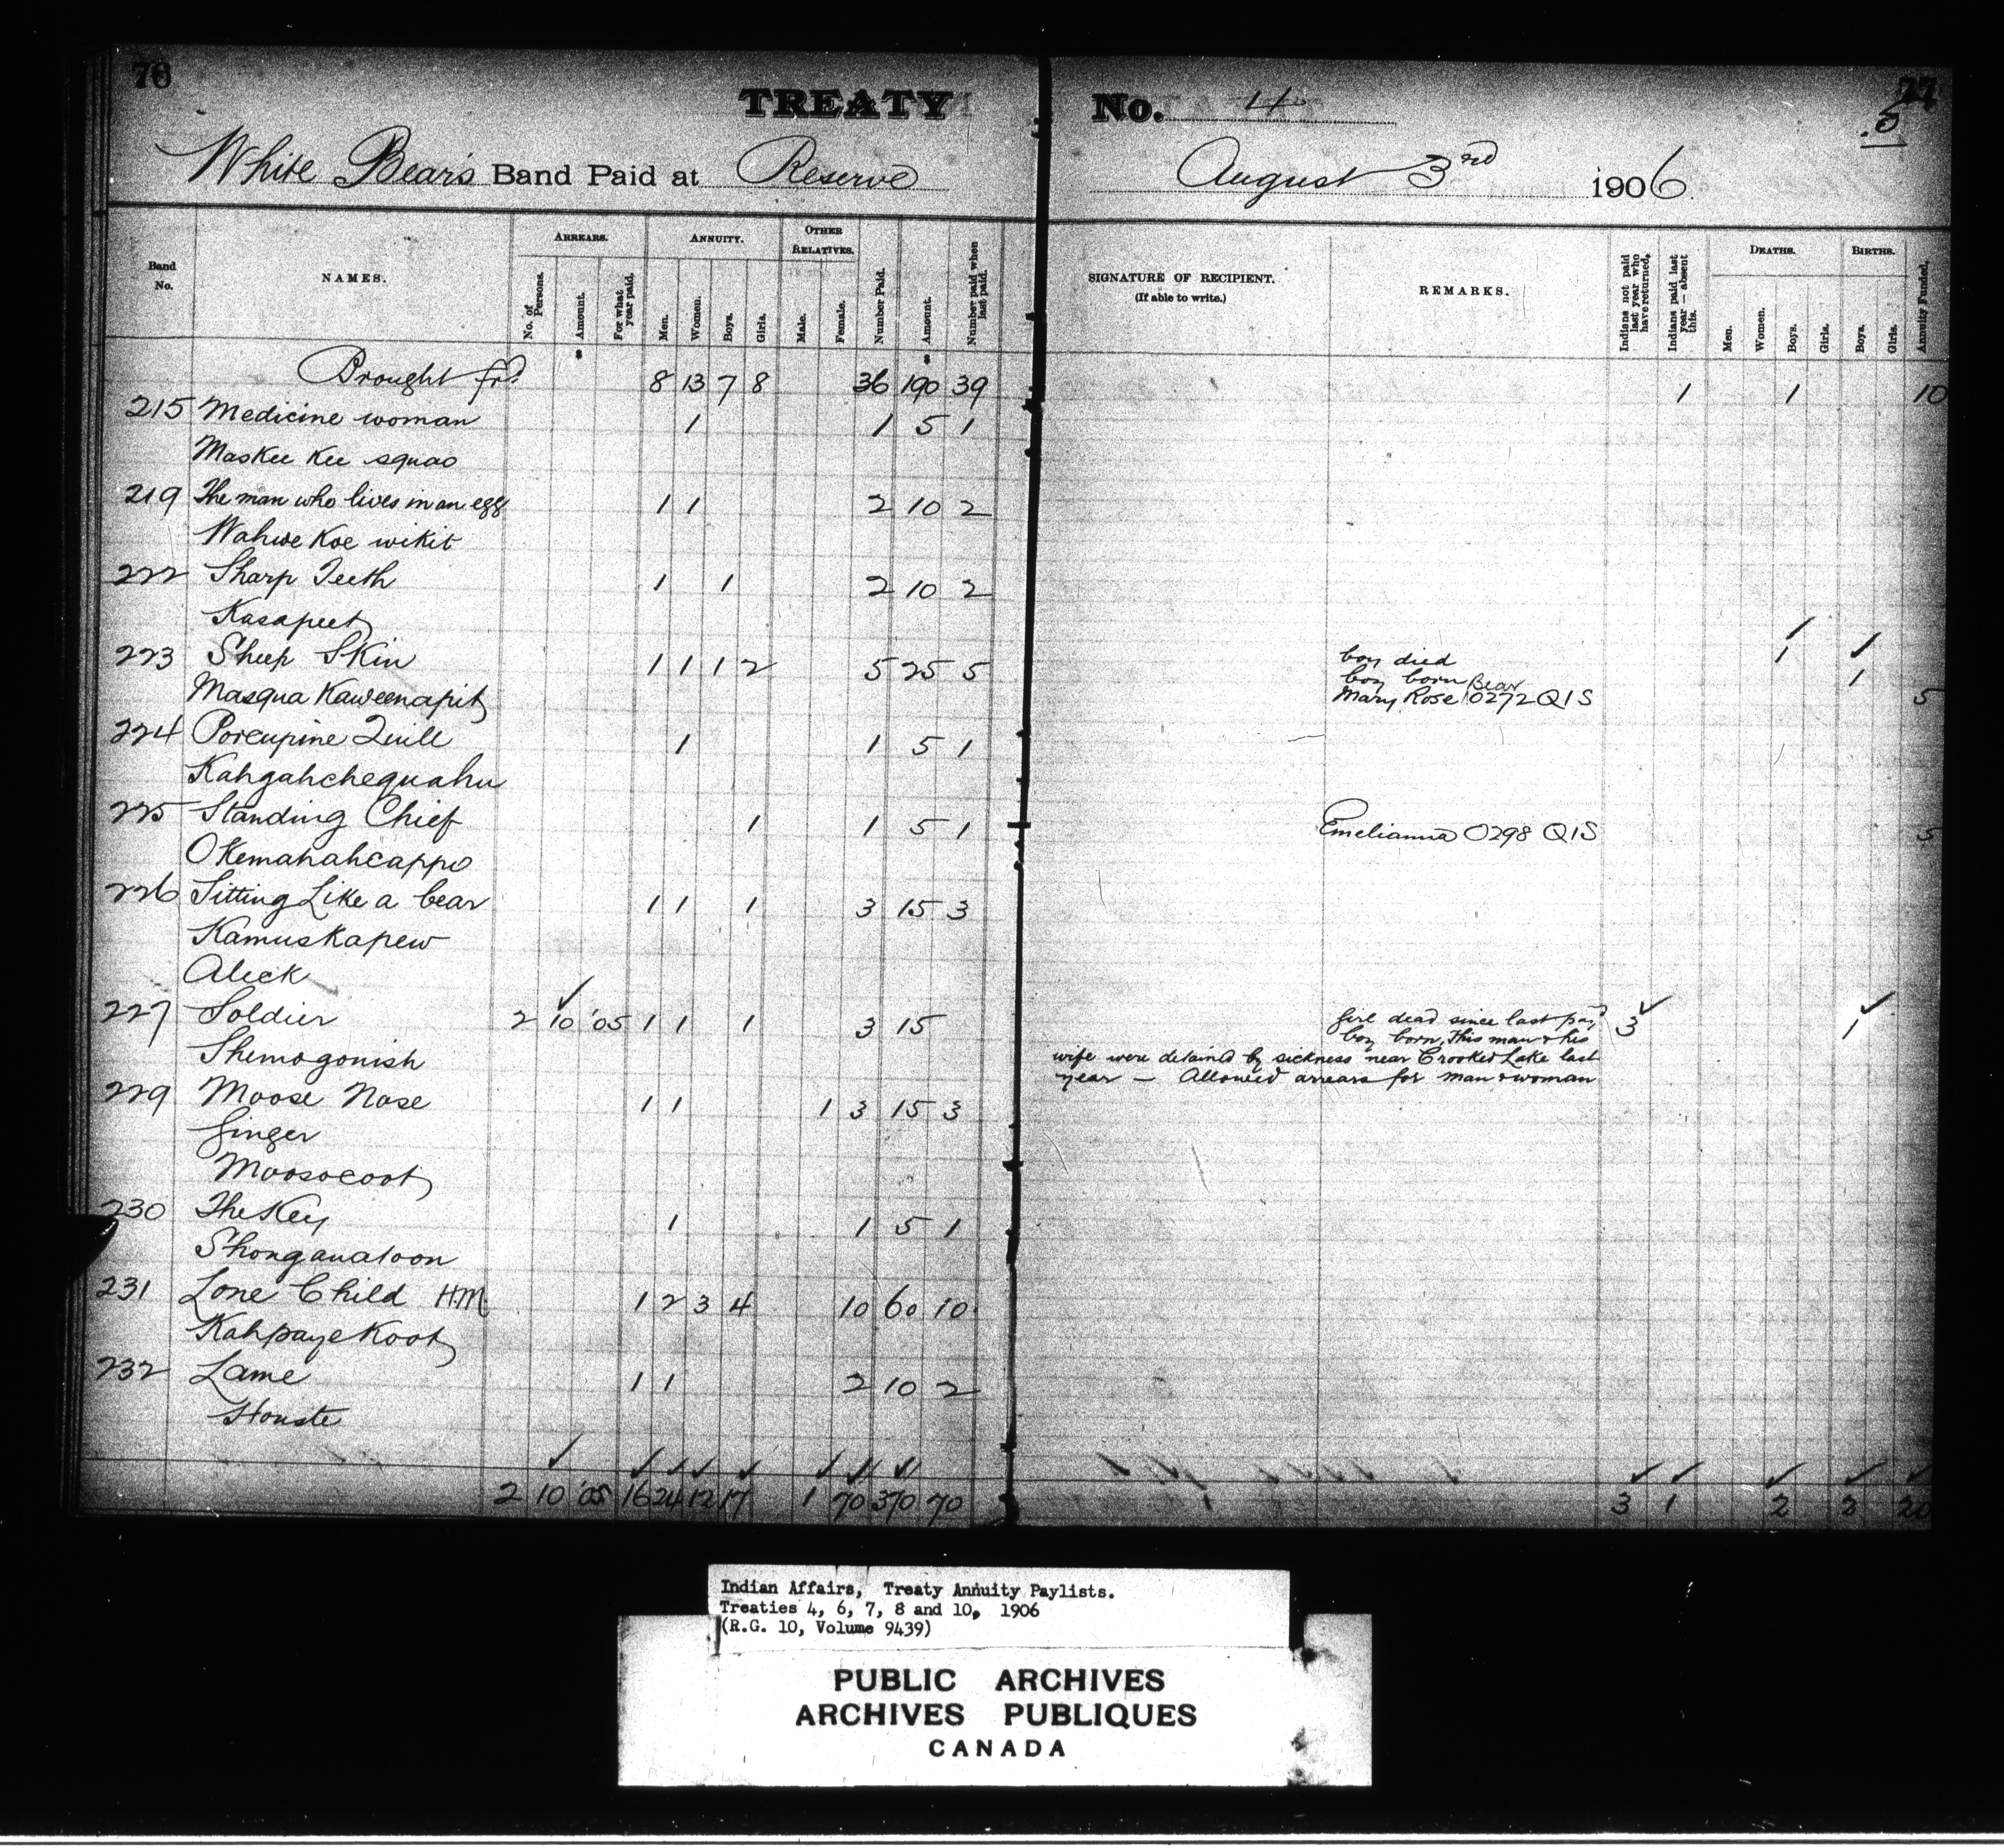 76
77
5
TREATY No. 4
White Bear's Band Paid at Reserve August 3rd 1906.
Band No. NAMES. ARREARS. ANNUITY. OTHER RELATIVES. Number Paid. Amount. Number paid when last paid. SIGNATURE OF RECIPIENT. (If able to write.) REMARKS. Indians not paid last year who have returned. Indians paid last year — absent this. DEATHS. BIRTHS. Annuity Funded.
No. of Persons. Amount. For what year paid. Men. Women. Boys. Girls. Male. Female. Men. Women. Boys. Girls. Boys. Girls.
Brought frd. 8 13 7 8 36 190 39 1 1 10
215 Medicine woman 1 1 5 1
Maskee Kee squao
219 The man who lives in an egg 1 1 2 10 2
Wahwe Koe wikit
222 Sharp Teeth 1 1 2 10 2
Kasapeet
223 Sheep Skin 1 1 1 2 5 25 5 boy died 1
boy born 1
Masqua Kaweenapit Mary Rose Bear 0272 Q1S 5
224 Porcupine Quill 1 1 5 1
Kahgahchequahu
225 Standing Chief 1 1 5 1 Emelianna 0298 Q1S 5
Okemahahcappo
226 Sitting Like a bear 1 1 1 3 15 3
Kamuskapew
Aleck
227 Soldier 2 10 '05 1 1 1 3 15 girl dead since last paid 3 1
boy born, This man & his
Shemogonish wife were detained by sickness near Crooked Lake last
year — Allowed arrears for man & woman
229 Moose Nose 1 1 1 3 15 3
Ginger
Moosocoot
230 The Key 1 1 5 1
Shonganatoon
231 Lone Child HM 1 2 3 4 10 60 10
Kahpaye Koot
232 Lame 1 1 2 10 2
Houste
2 10 '05 16 24 12 17 1 70 370 70 3 1 2 2 20
Indian Affairs, Treaty Annuity Paylists.
Treaties 4, 6, 7, 8 and 10, 1906
(R.G. 10, Volume 9439)
PUBLIC ARCHIVES
ARCHIVES PUBLIQUES
CANADA